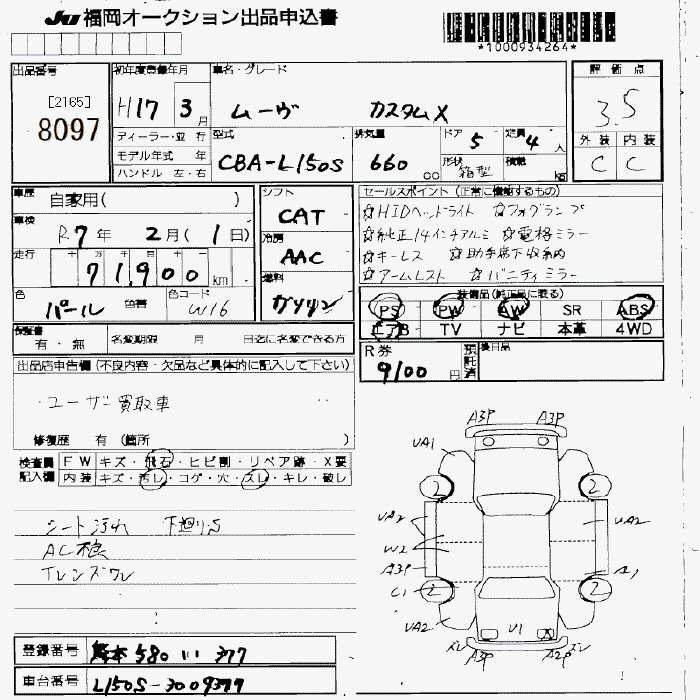 JU 福岡オークション出品申込書
*1000934264*
出品番号 [2165] 8097
初年度登録年月 H17 3月
車名・グレード ムーヴ カスタムX
評価点 3.5
外装 C 内装 C
ディーラー・並行
モデル年式 年
ハンドル 左・右
型式 CBA-L150S
排気量 660 cc
ドア 5 定員 4人
形状 箱型 積載 kg
車歴 自家用( )
車検 R7年 2月(1日)
走行 十万千百十一 71,900 km
色 パール 色替
色コード W16
シフト CAT
冷房 AAC
燃料 ガソリン
セールスポイント(正常に機能するもの)
☆HIDヘッドライト ☆フォグランプ
☆純正14インチアルミ ☆電格ミラー
☆キーレス ☆助手席下収納
☆アームレスト ☆バニティミラー
装備品(純正品に限る)
PS PW AW SR ABS
エアB TV ナビ 本革 4WD
保証書 有・無
名変期限 月 日迄に名変できる方
R券 9100円
預託済
後日品
出品店申告欄(不良内容・欠品など具体的に記入して下さい)
・ユーザー買取車
修復歴 有(箇所 )
検査員記入欄
FW キズ・飛石・ヒビ割・リペア跡・X要
内装 キズ・汚レ・コゲ・穴・スレ・キレ・破レ
シート汚れ 下廻りS
AC
TレンズワレL
A3P A3P
UA1
2 2
UA2 UA2
W2
A3P A1
C1
2 2
UA2 U1 X
ズレ A3P A2P ズレ
登録番号 熊本 580 い 377
車台番号 L150S-3009377